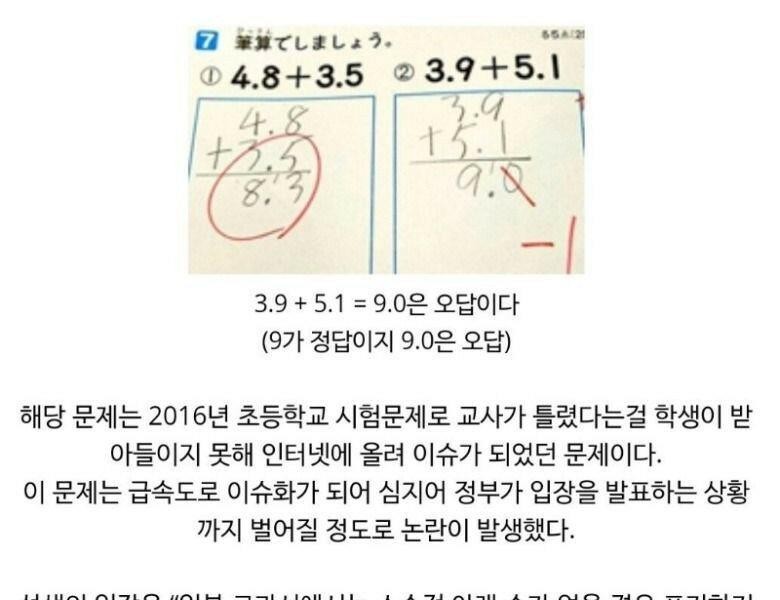 7 筆算でしましょう。
① 4.8+3.5 ② 3.9+5.1
4.8
+3.5
8.3
3.9
+5.1
9.0
-1
3.9 + 5.1 = 9.0은 오답이다
(9가 정답이지 9.0은 오답)
해당 문제는 2016년 초등학교 시험문제로 교사가 틀렸다는걸 학생이 받
아들이지 못해 인터넷에 올려 이슈가 되었던 문제이다.
이 문제는 급속도로 이슈화가 되어 심지어 정부가 입장을 발표하는 상황
까지 벌어질 정도로 논란이 발생했다.